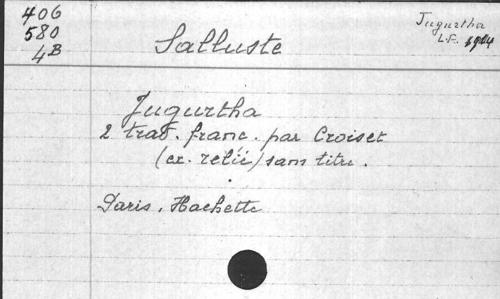 406
580
4B
Jugurtha
L.F. 1904
Salluste
Jugurtha
2 trad. franc. par Croiset
(ex. relié) sans titre.
Paris, Hachette